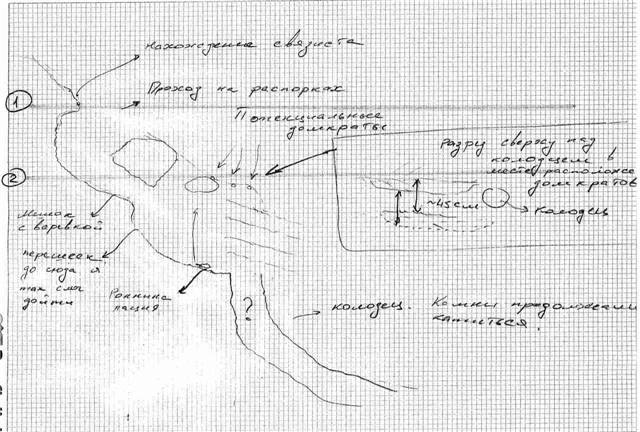 Нахождение связиста
1
Проход на распорках
Потенциальные
домкраты
Разру сверху над
колодцем в
месте расположе
домкратов
2
~45см
Колодец
Мешок
с верёвкой
перешеек
до сюда я
так смог
дойти
?
колодец. Камни продолжали
катиться.